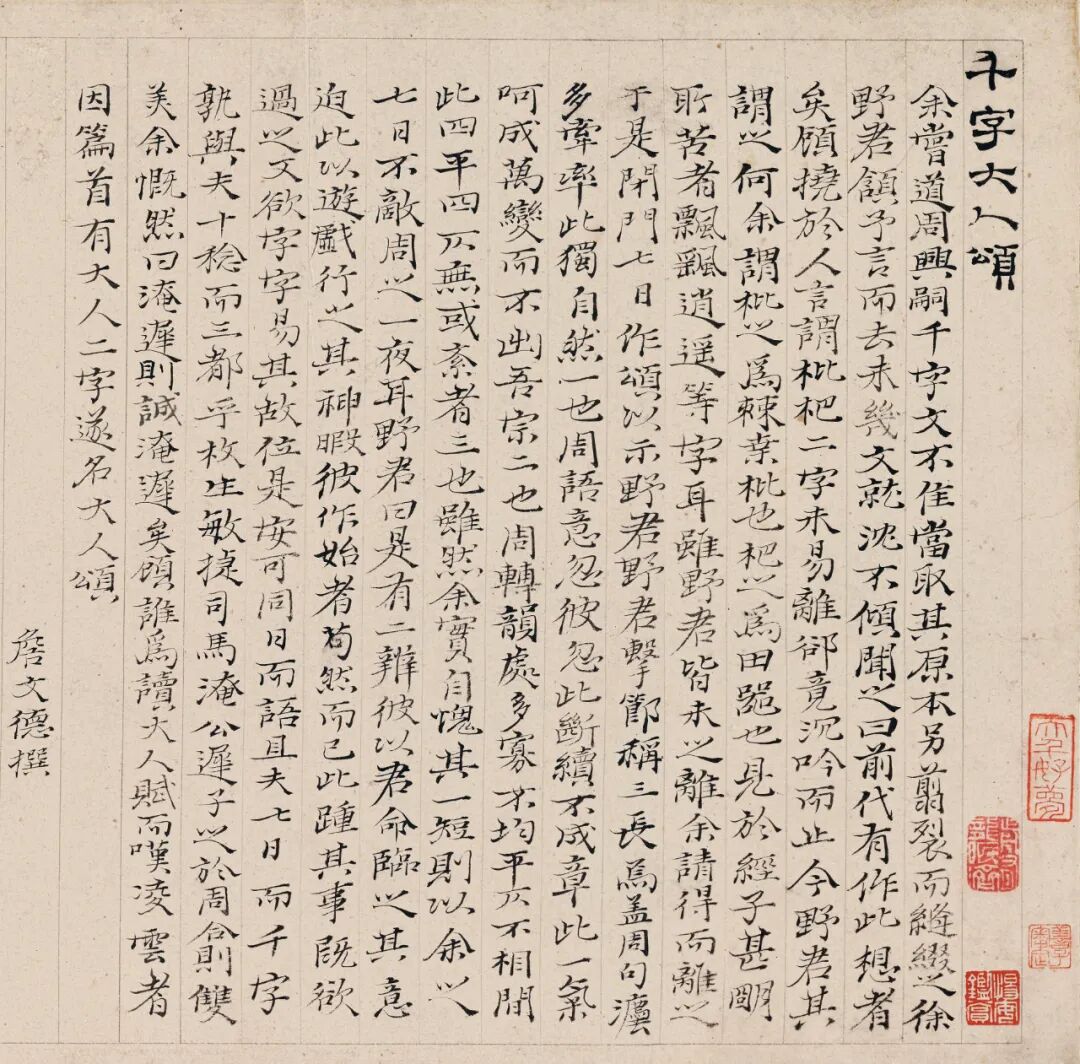 千字大人頌
余嘗道周興嗣千字文不佳當取其原本另翦裂而縫綴之徐
野君頷予言而去未幾文就沈不傾聞之曰前代有作此想者
矣顧撓於人言謂枇杷二字未易離郤竟沉吟而止今野君其
謂之何余謂枇之為棘枽枇也杷之為田器也見於經子甚明
所苦者飄飖逍遥等字耳雖野君皆未之離余請得而離之
于是閉門七日作頌以示野君野君擊節稱三長焉盖周句讀
多牽率此獨自然一也周語意忽彼忽此斷續不成章此一氣
呵成萬變而不出吾宗二也周轉韻處多寡不均平仄不相間
此四平四仄無或紊者三也雖然余實自愧其一短則以余之
七日不敵周之一夜耳野君曰是有二辨彼以君命臨之其意
迫此以遊戲行之其神暇彼作始者茍然而已此踵其事既欲
過之又欲字字易其故位是安可同日而語且夫七日而千字
孰與夫十稔而三都乎枚生敏㨗司馬淹公遲子之於周合則雙
美余慨然曰淹遲則誠淹遲矣顧誰為讀大人賦而嘆凌雲者
因篇首有大人二字遂名大人頌
詹文德撰